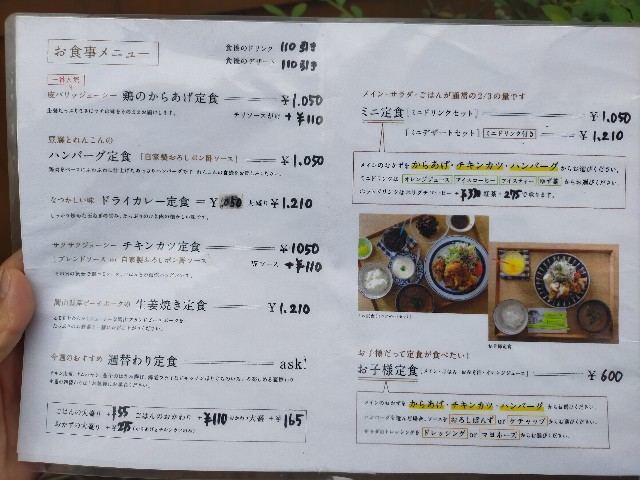 お食事メニュー
食後のドリンク 110引き
食後のデザート 110引き
一番人気
皮パリッジューシー 鶏のからあげ定食 ¥1.050
チリソースがけ +¥110
豆腐とれんこんの
ハンバーグ定食 [自家製おろしポン酢ソース] ¥1.050
なつかしい味 ドライカレー定食 = ¥1.050 大盛り ¥1.210
サクサクジューシー チキンカツ定食 ¥1050
[ブレンドソース or 自家製おろしポン酢ソース] 味噌ソース +¥110
生姜焼き定食 ¥1.210
今週のおすすめ 週替わり定食 ask!
ごはんの大盛り +¥55 ごはんのおかわり +¥110 おかわり大盛 +¥165
おかずの大盛り +¥275 (からあげとチキンカツのみ)
メイン・サラダ・ごはんが通常の2/3の量です
ミニ定食 [ミニドリンクセット] ¥1.050
[ミニデザートセット] ミニドリンク付き ¥1.210
メインのおかずを からあげ・チキンカツ・ハンバーグ からお選びください。
ミニドリンクは オレンジジュース アイスコーヒー アイスティー ゆず茶 からお選びください
+¥330 紅茶+275で承ります。
お子様定食
お子様だって定食が食べたい!
お子様定食 [メイン・ごはん・お味噌汁・オレンジジュース] ¥600
メインのおかずを からあげ・チキンカツ・ハンバーグ からお選びください。
ハンバーグを選んだ場合、ソースを おろしぽんず or ケチャップ からお選びください。
ドレッシングを ドレッシング or マヨネーズ からお選びください。